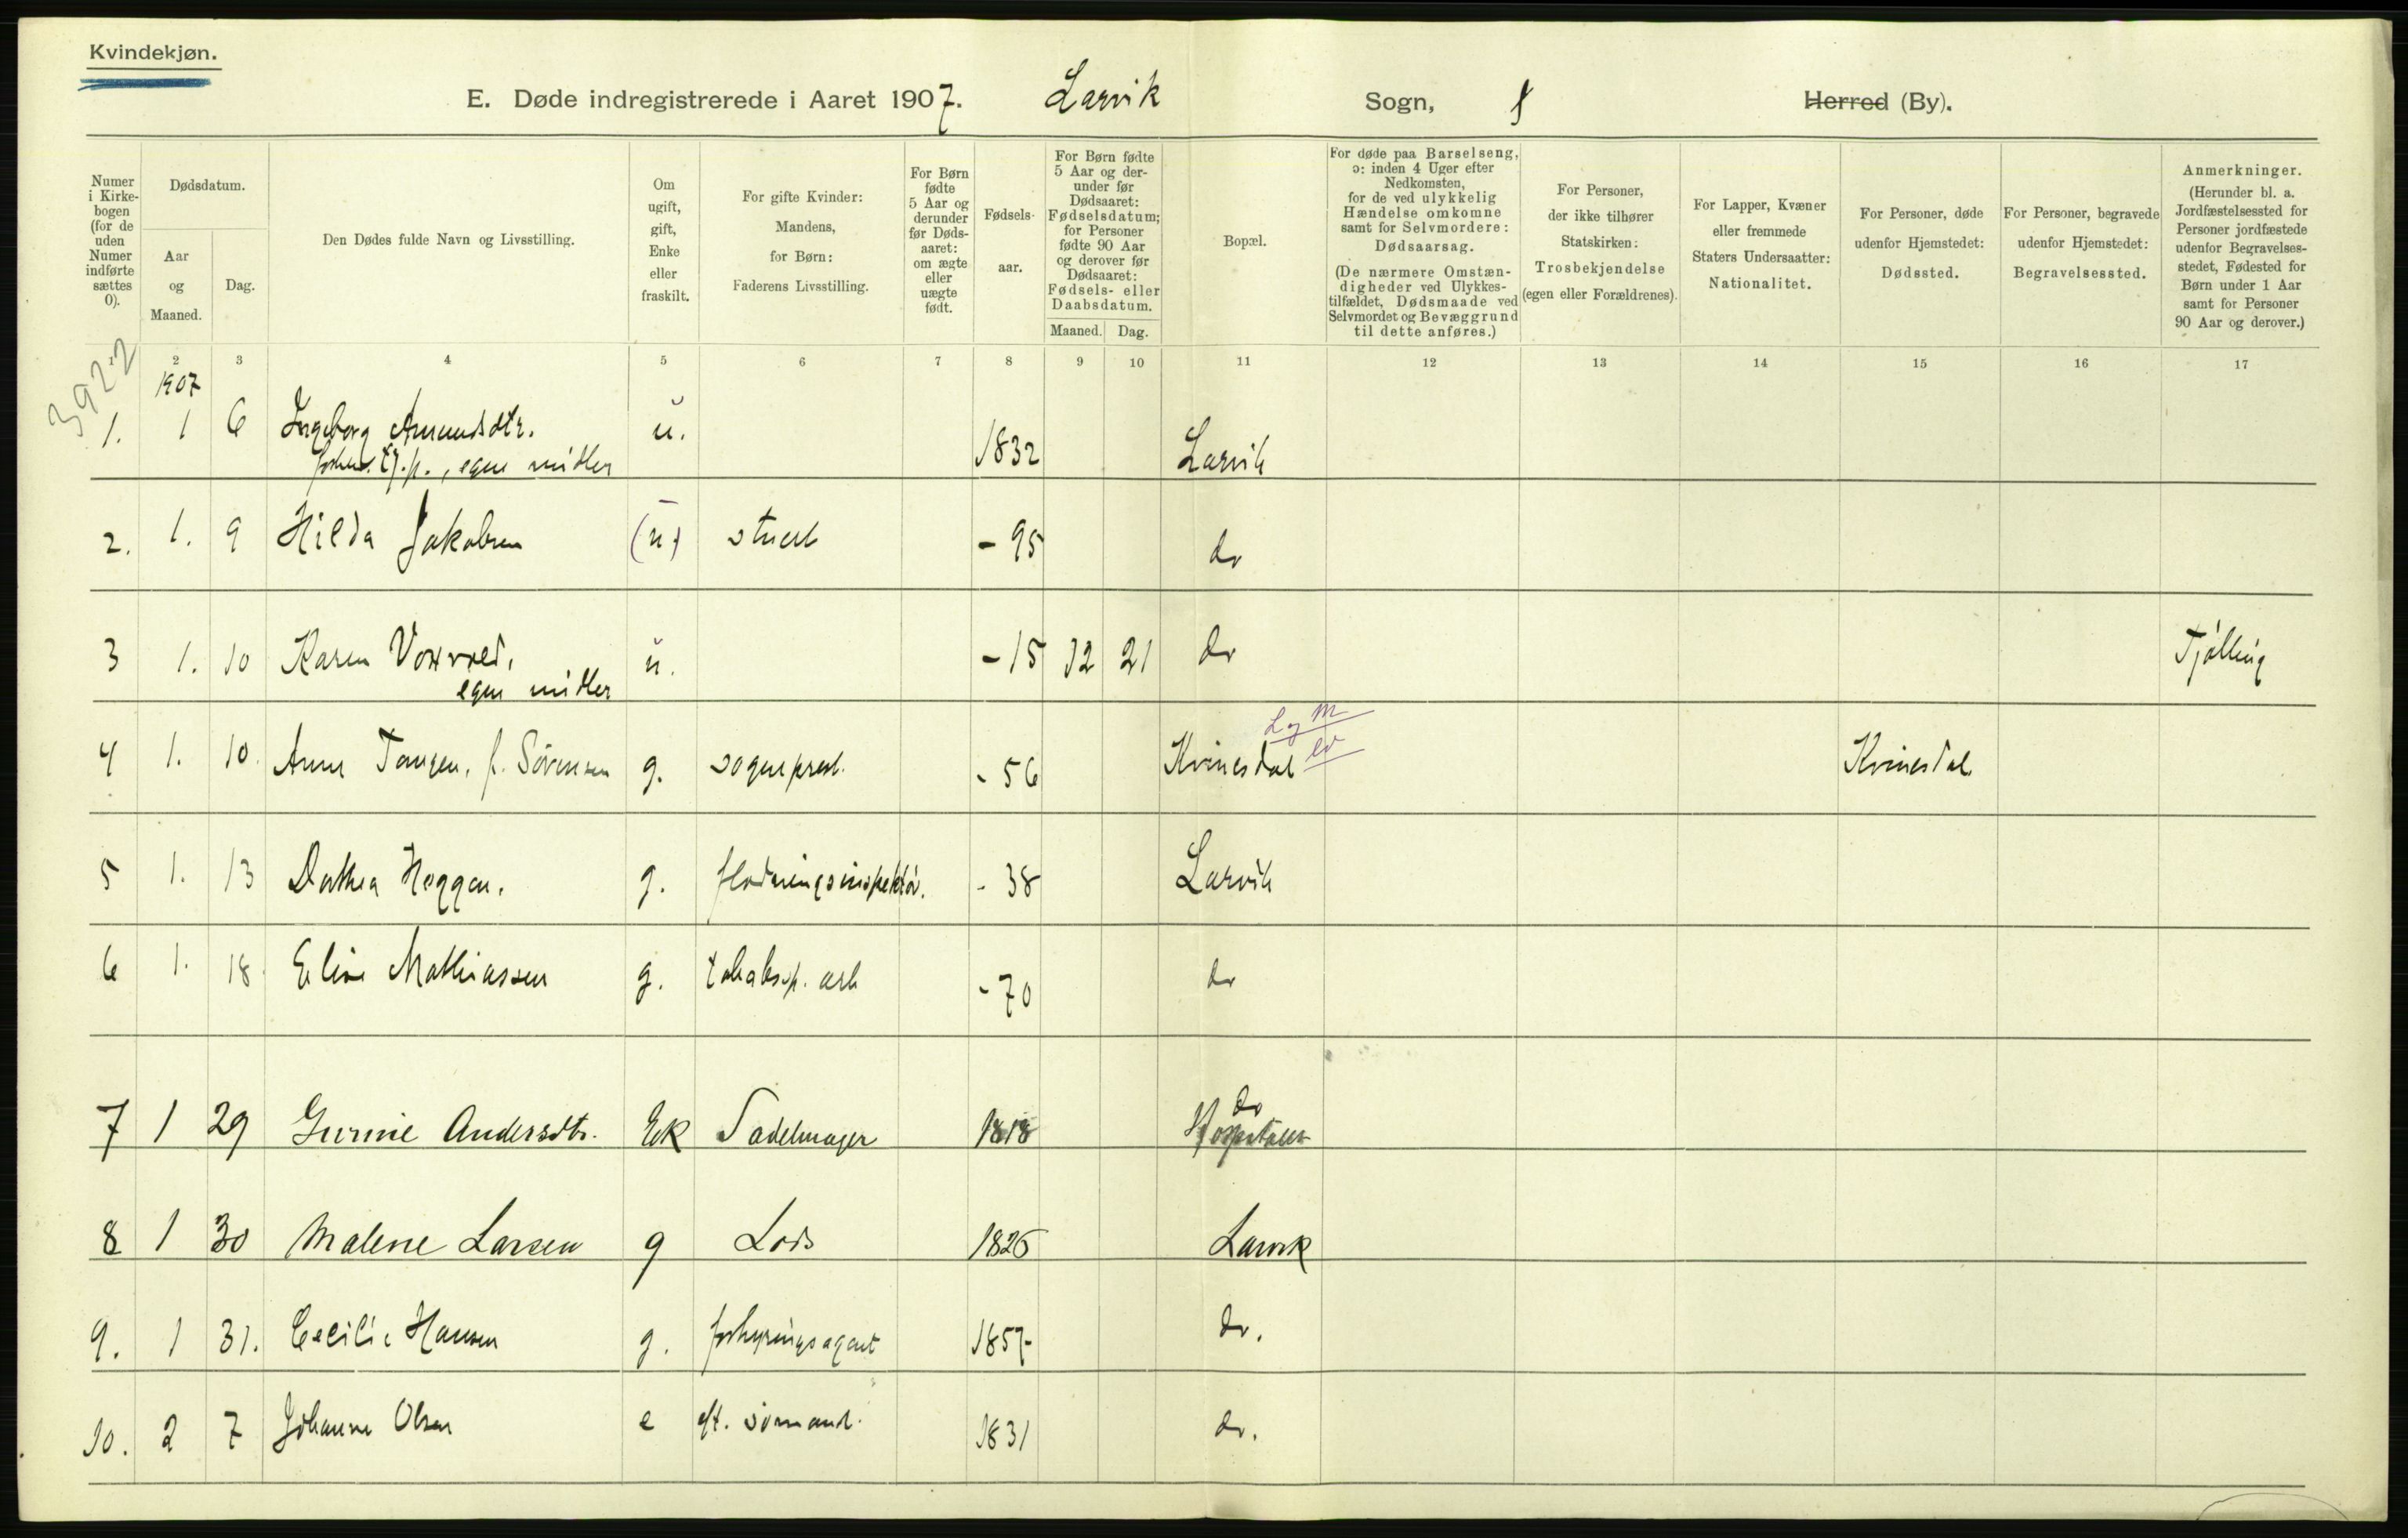 Kvindekjøn.
E. Døde indregistrerede i Aaret 1907. Larvik Sogn, Herred (By).
Numer i Kirkebogen (for de uden Numer indførte sættes 0).
Dødsdatum.
Aar og Maaned.
Dag.
Den Dødes fulde Navn og Livsstilling.
Om ugift, gift, Enke eller fraskilt.
For gifte Kvinder: Mandens, for Børn: Faderens Livsstilling.
For Børn fødte 5 Aar og derunder før Dødsaaret: om ægte eller uægte født.
Fødselsaar.
For Børn fødte 5 Aar og derunder før Dødsaaret: Fødselsdatum; for Personer fødte 90 Aar og derover før Dødsaaret: Fødsels- eller Daabsdatum.
Maaned. Dag.
Bopæl.
For døde paa Barselseng, ɔ: inden 4 Uger efter Nedkomsten, for de ved ulykkelig Hændelse omkomne samt for Selvmordere: Dødsaarsag. (De nærmere Omstændigheder ved Ulykkestilfældet, Dødsmaade ved Selvmordet og Bevæggrund til dette anføres.)
For Personer, der ikke tilhører Statskirken: Trosbekjendelse (egen eller Forældrenes).
For Lapper, Kvæner eller fremmede Staters Undersaatter: Nationalitet.
For Personer, døde udenfor Hjemstedet: Dødssted.
For Personer, begravede udenfor Hjemstedet: Begravelsessted.
Anmerkninger. (Herunder bl. a. Jordfæstelsessted for Personer jordfæstede udenfor Begravelsesstedet, Fødested for Børn under 1 Aar samt for Personer 90 Aar og derover.)
2 3 4 5 6 7 8 9 10 11 12 13 14 15 16 17
3922
1907
1. 1 6 Ingeborg Amundsdtr. u. 1832 Larvik
egne midler
2. 1. 9 Hilda Jakobsen (u) - 95 do
3 1. 10 Karen u. - 15 12 21 do Tjölling
egne midler
4 1. 10. Anna Tangen, f. Sörensen g. sogneprest. - 56 Kvinesdal Kvinesdal
5 1. 13 Dorthea Heggen. g. flödningsinspektör. - 38 Larvik
6 1. 18 Eline Mathiassen g. tobakssp. arb - 70 do
7 1 29 Gurine Andersdtr. Ek Sadelmager 1818 do
Hospitalet
8 1 30 Malene Larsen g Lods 1826 Larvik
9. 1 31. Cecilie Hansen g. forhyringsagent 1857 do.
10. 2 7 Johanne Olsen e eft. sömand. 1831 do.